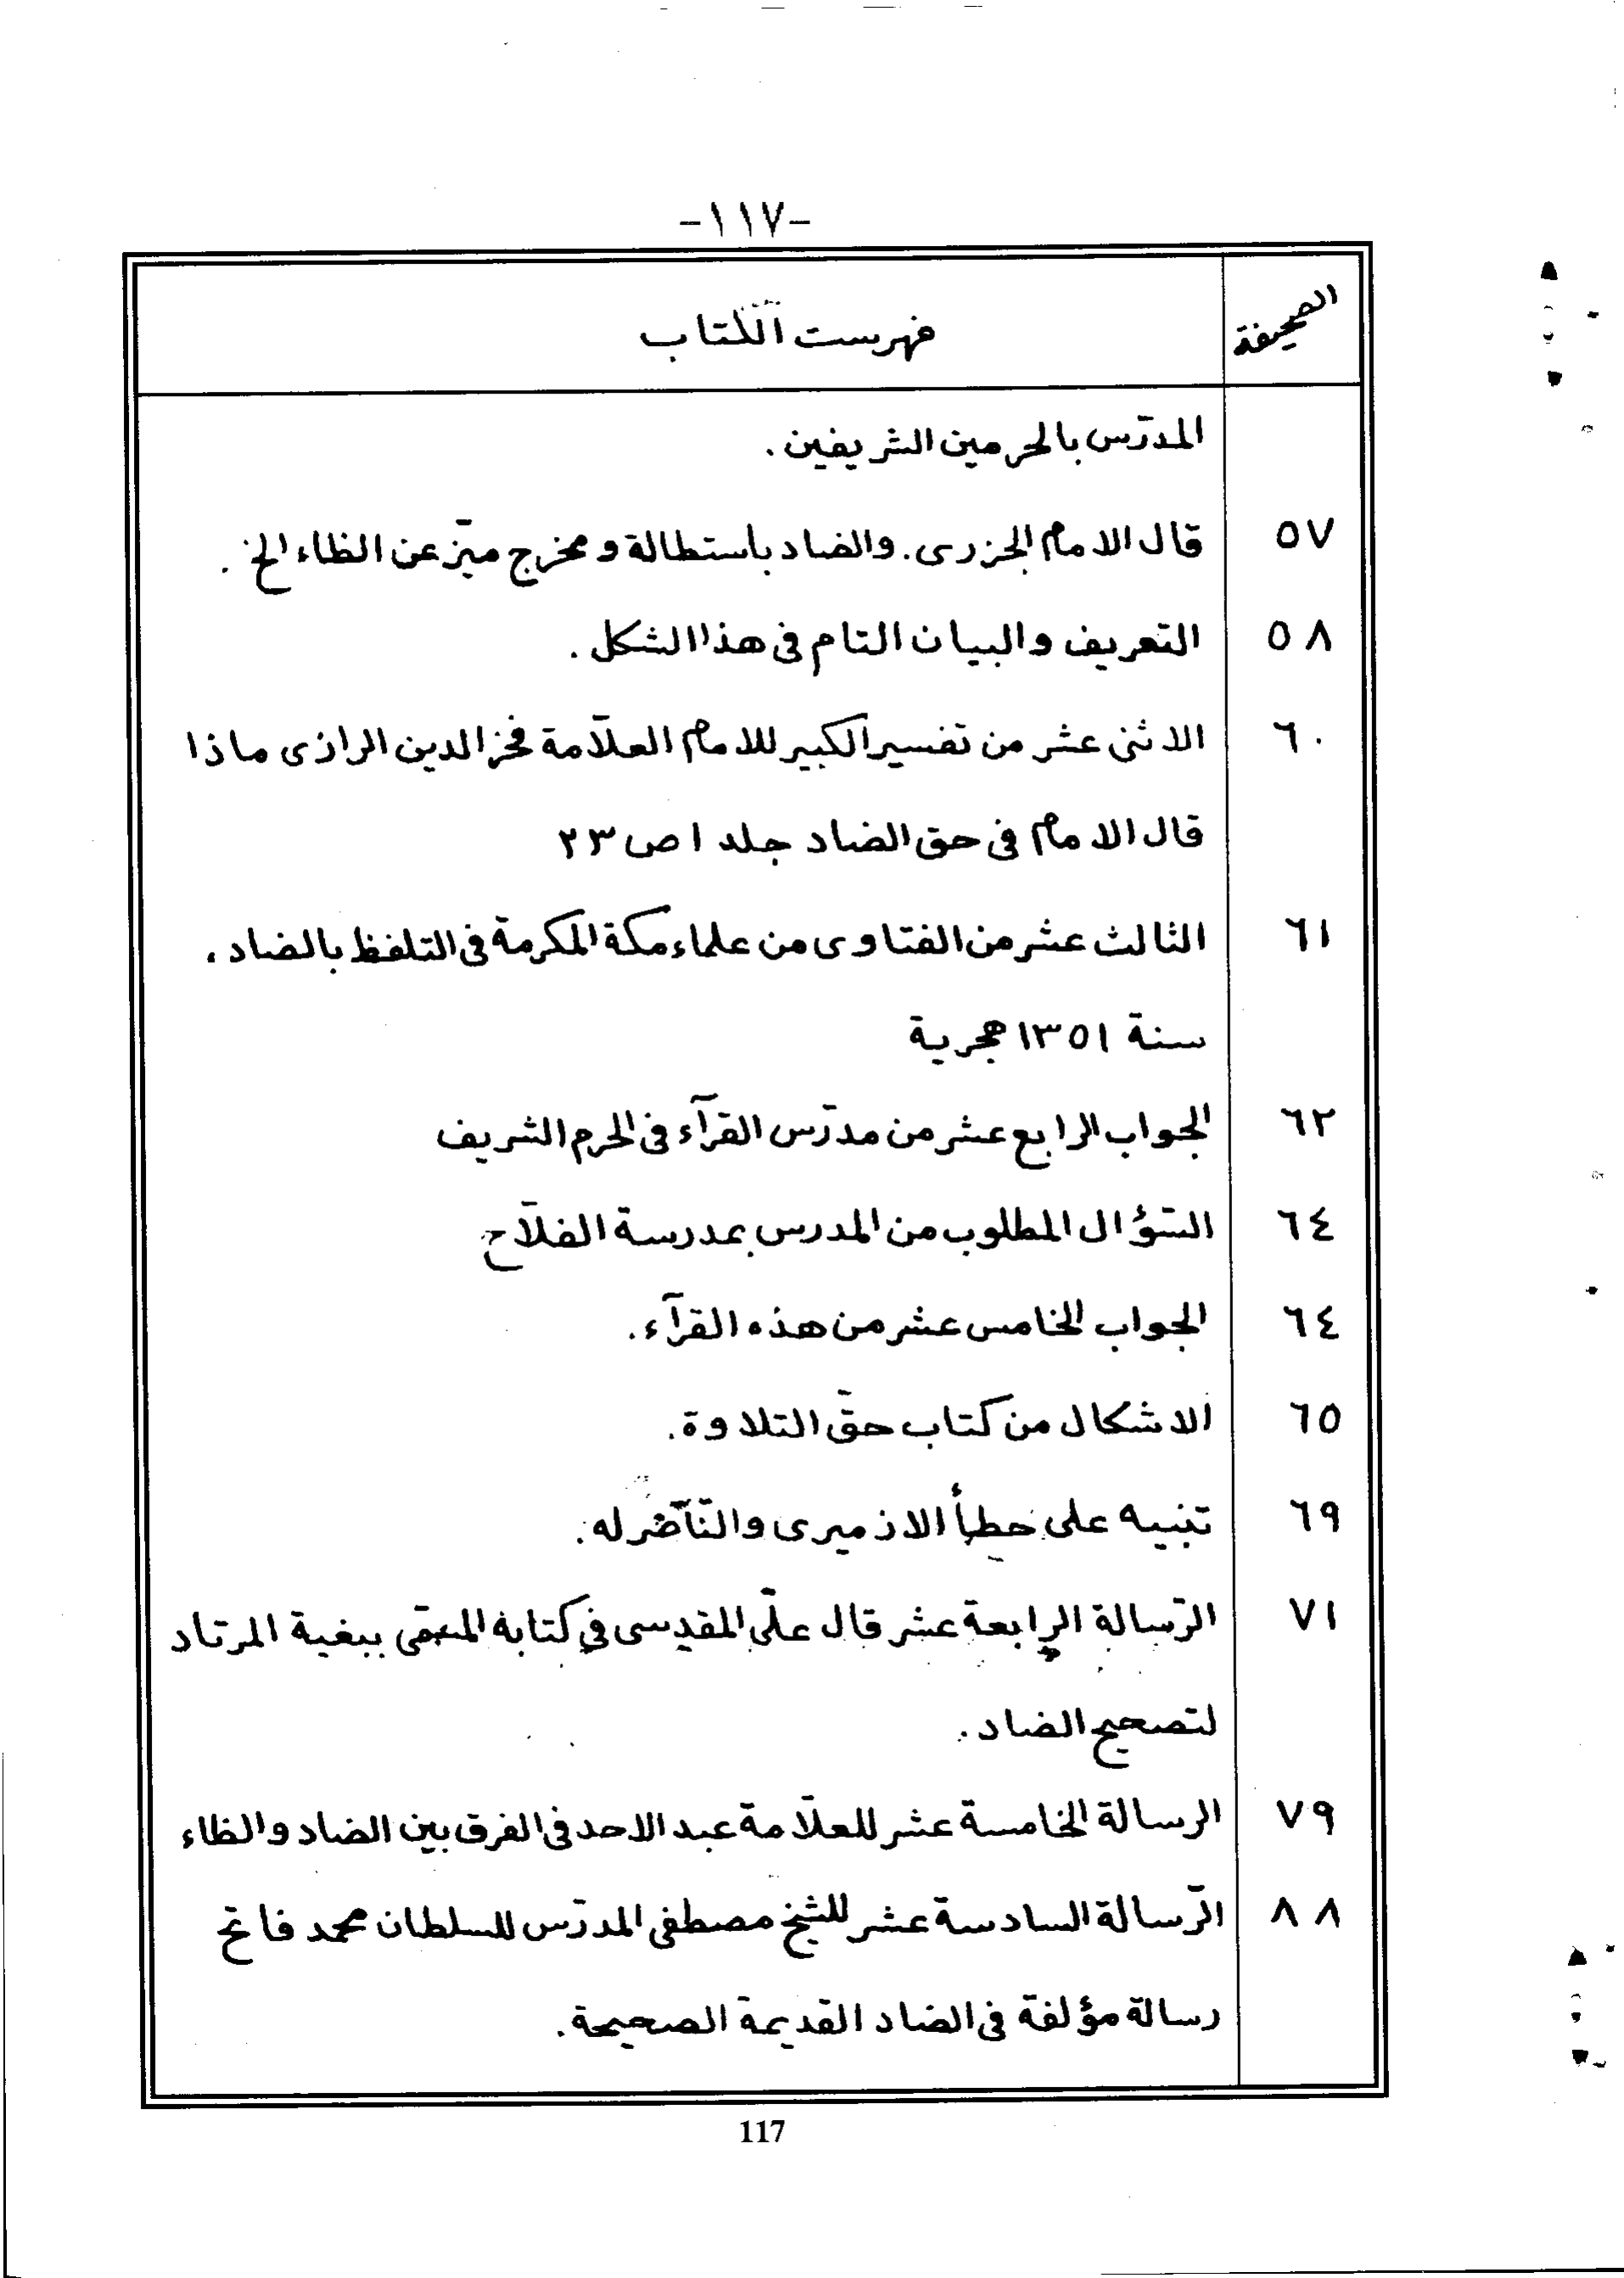 -١١٧-
الصحيفة فهرست الكتاب
المدرّس بالحرمين الشريفين .
٥٧ قال الامام الجزرى. والضاد باستطالة و مخرج ميّز عن الظاء الخ .
٥٨ التعريف والبيان التام فى هذا الشكل .
٦٠ الاثنى عشر من تفسير الكبير للامام العلّامة فخر الدين الرازى ماذا
قال الامام فى حق الضاد جلد ١ ص ٢٣
٦١ الثالث عشر من الفتاوى من علماء مكة المكرمة فى التلفظ بالضاد ،
سنة ١٣٥١ هجرية
٦٢ الجواب الرابع عشر من مدرّس القرآء فى الحرم الشريف
٦٤ السّؤال المطلوب من المدرس بمدرسة الفلّاح
٦٤ الجواب الخامس عشر من هذه القرآء .
٦٥ الاشكال من كتاب حقّ التلاوة .
٦٩ تنبيه على خطأ الازميرى والنّاصر له .
٧١ الرّسالة الرابعة عشر قال علّى المقدسى فى كتابة المسمّى ببغية المرتاد
لتصحيح الضاد .
٧٩ الرسالة الخامسة عشر للعلّامة عبد الاحد فى الفرق بين الضاد والظاء
٨٨ الرّسالة السادسة عشر للشيخ مصطفى المدرّس للسلطان محمد فاتح
رسالة مؤلفة فى الضاد القديمة الصحيحة .
117